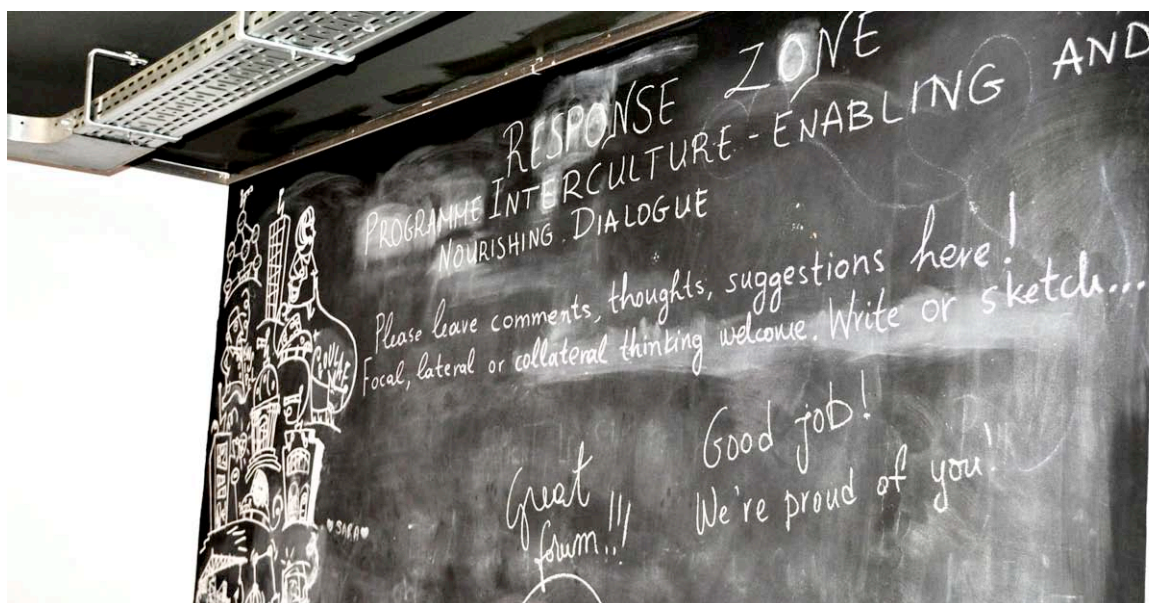 RESPONSE ZONE
PROGRAMME INTERCULTURE - ENABLING AND
NOURISHING DIALOGUE
Please leave comments, thoughts, suggestions here!
Focal, lateral or collateral thinking welcome. Write or sketch...
Good job!
We're proud of you!
Great
forum!!!
♥SARA♥